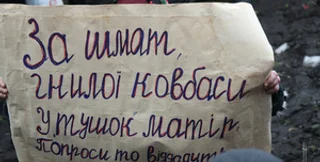 За шмат,
гнилої ковбаси
У тушок матір
Попроси то віддадуть